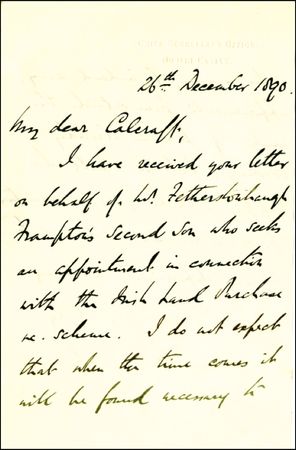 CHIEF SECRETARY'S OFFICE,
DUBLIN CASTLE.
26th December 1890.
My dear Calcraft,
I have received your letter
on behalf of Mr. Fetherstonhaugh
Frampton's second son who seeks
an appointment in connection
with the Irish Land Purchase
scheme. I do not expect
that when the time comes it
will be found necessary to